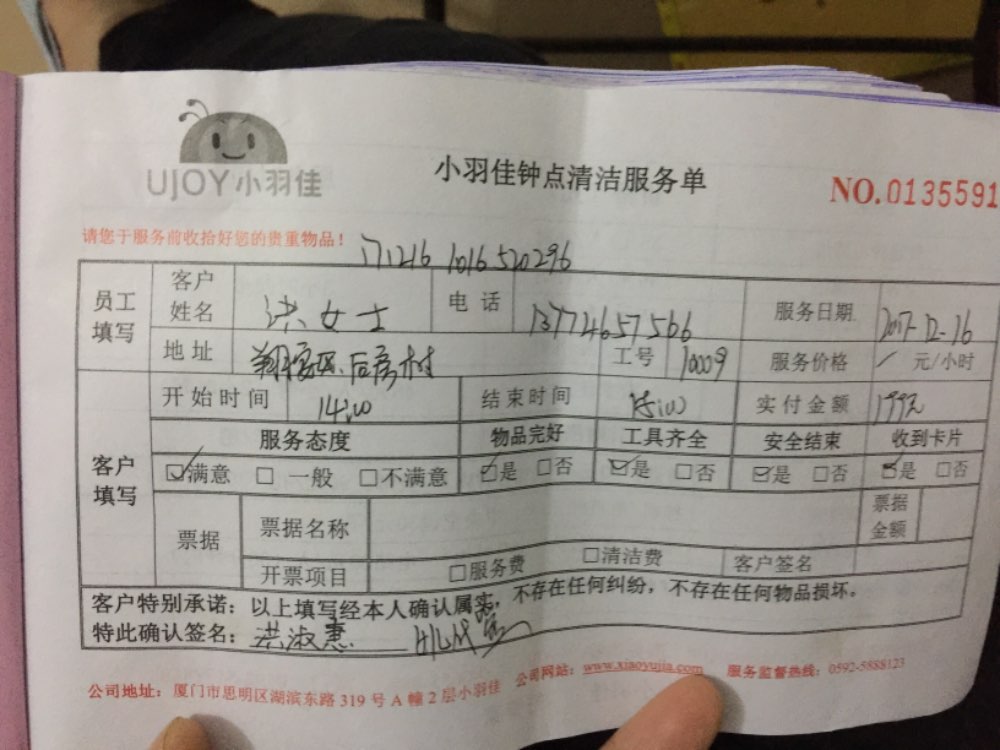 UJOY小羽佳
小羽佳钟点清洁服务单
NO.0135591
请您于服务前收拾好您的贵重物品！
171216 1016520296
员工填写 客户姓名 洪女士 电话 13774657566 服务日期 2017-12-16
地址 翔安区 后房村 工号 10009 服务价格 / 元/小时
客户填写 开始时间 14:00 结束时间 15:00 实付金额 199元
服务态度 物品完好 工具齐全 安全结束 收到卡片
☑满意 □一般 □不满意 ☑是 □否 ☑是 □否 ☑是 □否 ☑是 □否
票据 票据名称 票据金额
开票项目 □服务费 □清洁费 客户签名
客户特别承诺：以上填写经本人确认属实，不存在任何纠纷，不存在任何物品损坏。
特此确认签名：洪淑惠
公司地址：厦门市思明区湖滨东路 319 号 A 幢 2 层小羽佳 公司网站：www.xiaoyujia.com 服务监督热线：0592-5888123